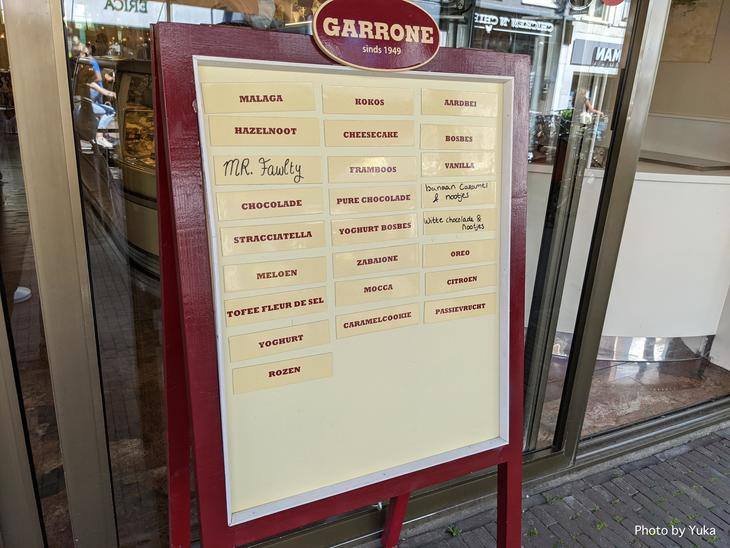 ERICA
GARRONE
sinds 1949
MALAGA
HAZELNOOT
MR. Fawlty
CHOCOLADE
STRACCIATELLA
MELOEN
TOFEE FLEUR DE SEL
YOGHURT
ROZEN
KOKOS
CHEESECAKE
FRAMBOOS
PURE CHOCOLADE
YOGHURT BOSBES
ZABAIONE
MOCCA
CARAMELCOOKIE
AARDBEI
BOSBES
VANILLA
& nootjes
Witte chocolade &
nootjes
OREO
CITROEN
PASSIEVRUCHT
Photo by Yuka